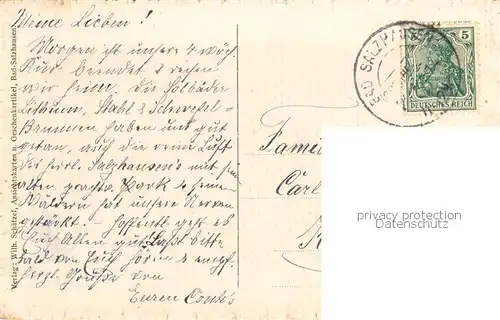 Meine Lieben!
Morgen ist unsere 4 wöch.
Kur beendet & reisen
wir heim. Die Solbäder
Lithium, Stahl & Schwefel-
Brunnen haben uns gut
getan, auch die reine Luft
des herrl. Salzhausen's mit sein
alten prachtv. Park & seinen
Wäldern hat unsere Nerven
gestärkt. - Hoffentl. geht es
Euch Allen gut. Lasst bitte
bald von Euch hören & empf.
herzl. Grüße von
Euren
Verlag: Wilh. Schützel, Ansichtskarten u. Geschenkartikel, Bad-Salzhausen
BAD SALZHAUSEN
5
DEUTSCHES REICH
Famil
Carl
privacy protection
Datenschutz